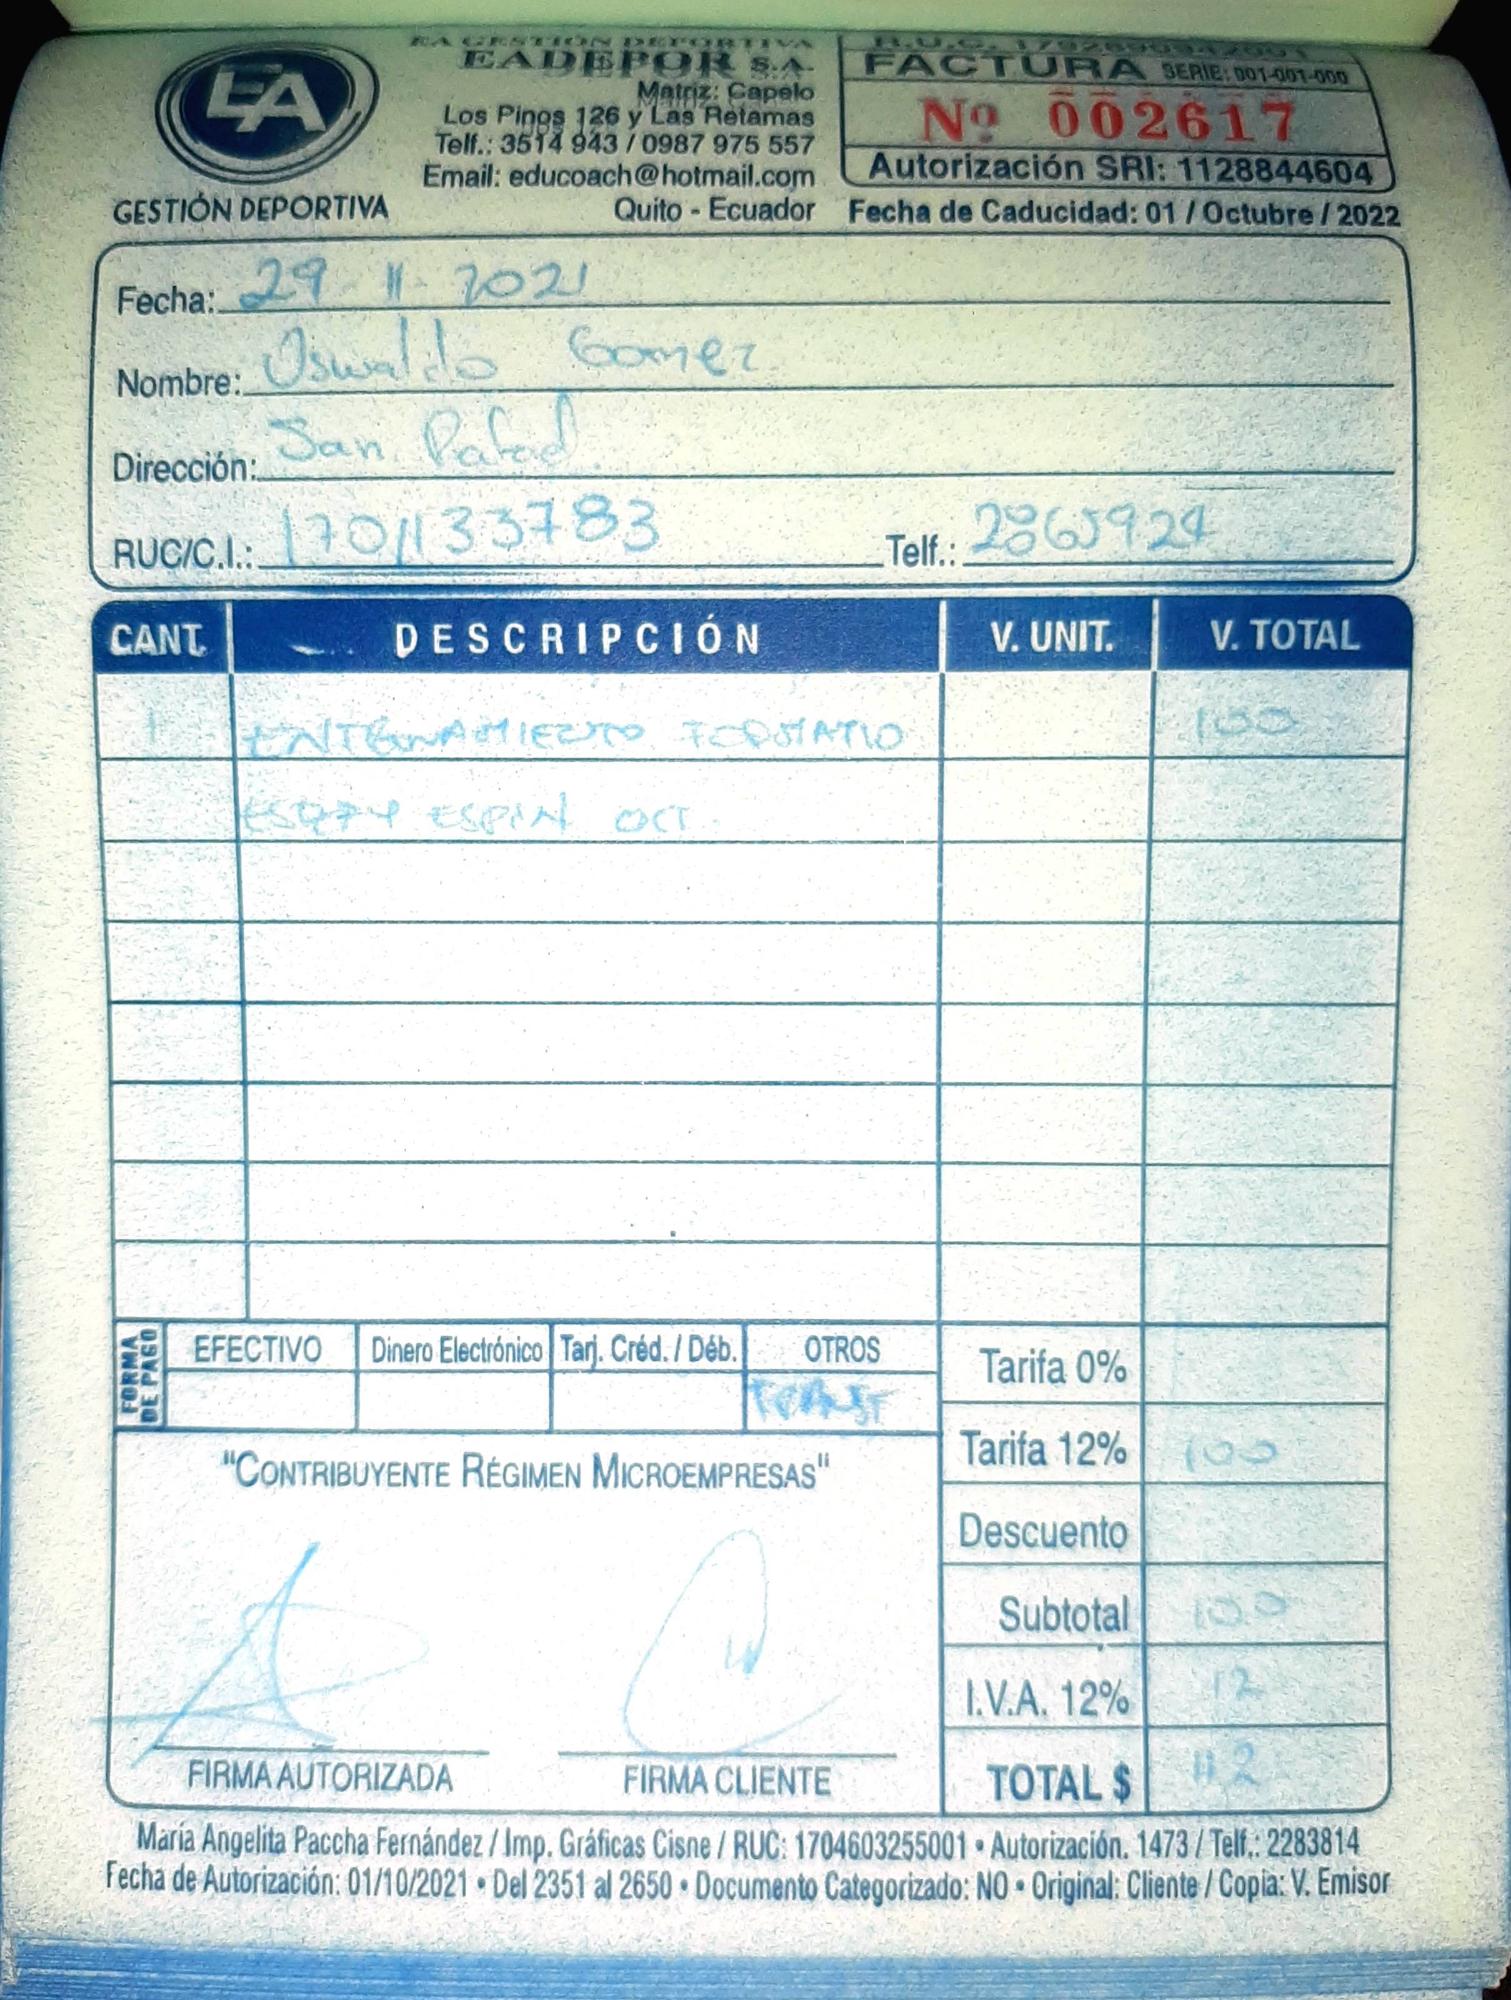 EA GESTIÓN DEPORTIVA
EADEPOR S.A.
Matriz: Capelo
Los Pinos 126 y Las Retamas
Telf.: 3514 943 / 0987 975 557
Email: educoach@hotmail.com
Quito - Ecuador
EA
GESTIÓN DEPORTIVA
R.U.C.
FACTURA SERIE: 001-001-000
Nº 002617
Autorización SRI: 1128844604
Fecha de Caducidad: 01 / Octubre / 2022
Fecha: 29 - 11 - 2021
Nombre: Oswaldo Gomez
Dirección: San Rafael
RUC/C.I.: 1701133783 Telf.: 2865924
CANT. DESCRIPCIÓN V. UNIT. V. TOTAL
1 ENTRENAMIENTO FORMATIO 100
ESPIN OCT.
FORMA DE PAGO
EFECTIVO Dinero Electrónico Tarj. Créd. / Déb. OTROS
TRANSF
Tarifa 0%
Tarifa 12% 100
Descuento
Subtotal 100
I.V.A. 12% 12
TOTAL $ 112
"CONTRIBUYENTE RÉGIMEN MICROEMPRESAS"
FIRMA AUTORIZADA FIRMA CLIENTE
María Angelita Paccha Fernández / Imp. Gráficas Cisne / RUC: 1704603255001 • Autorización. 1473 / Telf.: 2283814
Fecha de Autorización: 01/10/2021 • Del 2351 al 2650 • Documento Categorizado: NO • Original: Cliente / Copia: V. Emisor